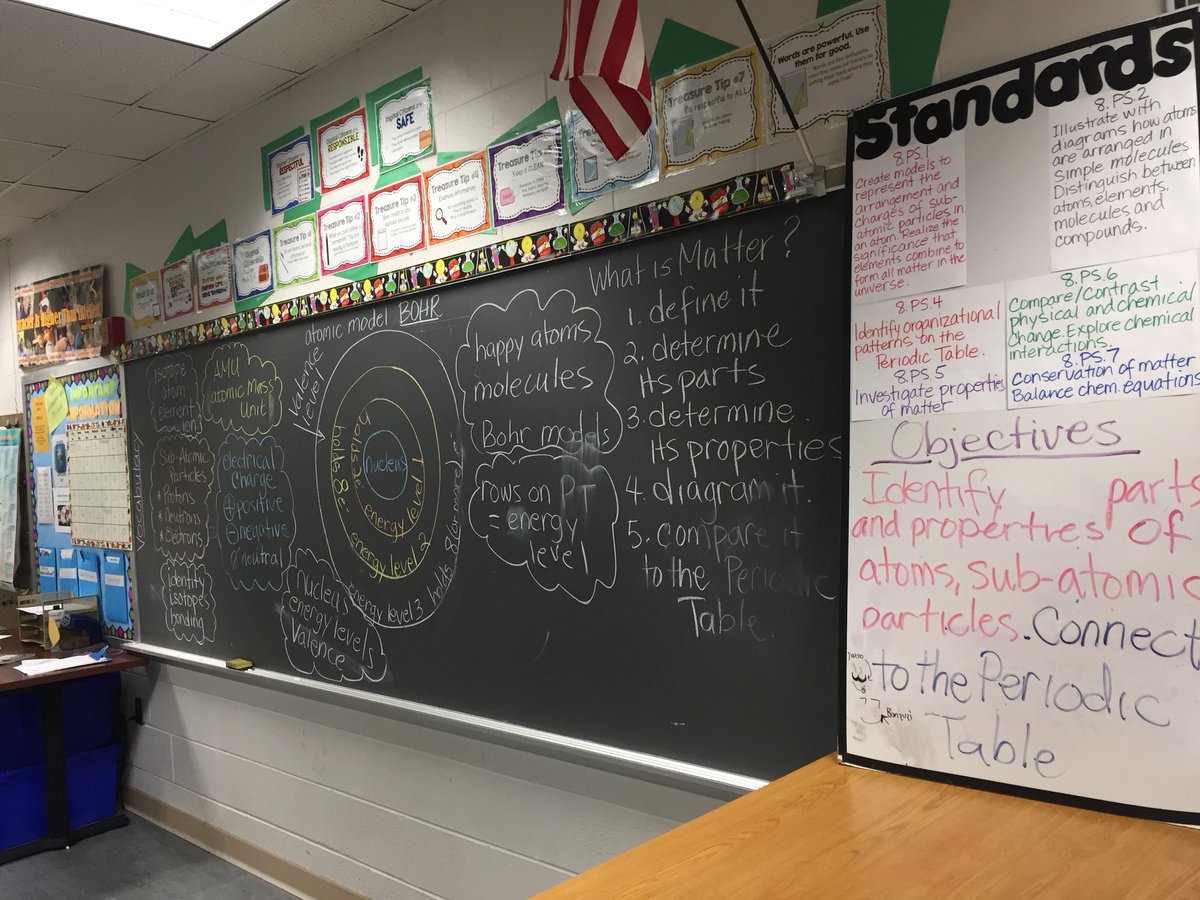 Digital Citizens are
RESPECTFUL
Digital Citizens are
RESPONSIBLE
Digital Citizens are
SAFE
Treasure Tip #1
Treasure Tip #2
Treasure Tip #3
Treasure Tip #4
Examine information.
Treasure Tip
Keep it CLEAN.
Treasure Tip #7
Be respectful to ALL.
Words are powerful. Use
them for good.
Digital
Citizenship
vocabulary
isotope
atom
element
AMU
atomic Mass
Unit
Sub-Atomic
Particles
+ Protons
+ Neutrons
+ Electrons
electrical
charge
⊕ positive
⊖ negative
neutral
identify
isotopes
bonding
atomic model BOHR
Valence
level
nucleus
energy level 1
holds 2e
energy level 2
holds 8e
energy level 3 holds 8(or more) e
nucleus
energy levels
Valence
happy atoms
molecules
Bohr models
rows on PT
= energy
level
What is Matter?
1. define it
2. determine
its parts
3. determine
its properties
4. diagram it.
5. compare it
to the Periodic
Table.
Standards
8.PS.1
Create models to
represent the
arrangement and
charges of sub-
atomic particles in
an atom. Realize the
significance that
elements combine to
form all matter in the
universe.
8.PS.2
Illustrate with
diagrams how atoms
are arranged in
Simple molecules
Distinguish between
atoms, elements,
molecules and
compounds.
8.PS.4
Identify organizational
patterns on the
Periodic Table.
8.PS.5
Investigate properties
of matter
8.PS.6
Compare/Contrast
physical and chemical
change. Explore chemical
interactions.
8.PS.7
Conservation of matter
Balance chem. equations
Objectives
Identify parts
and properties of
atoms, sub-atomic
particles. Connect
to the Periodic
Table